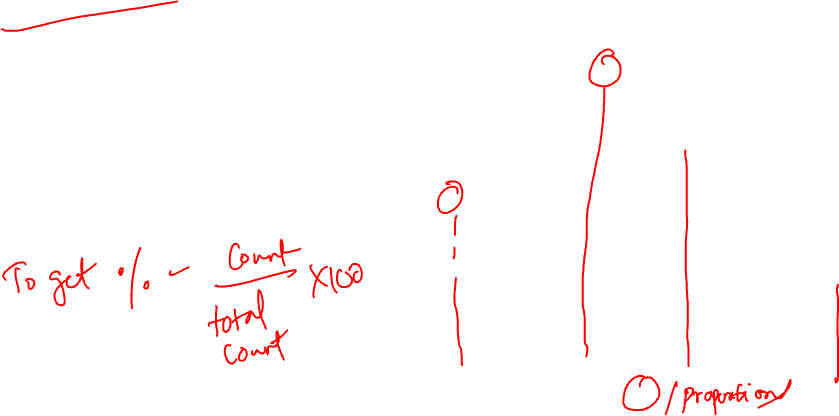 To get % - count / total count X100
O/proportion